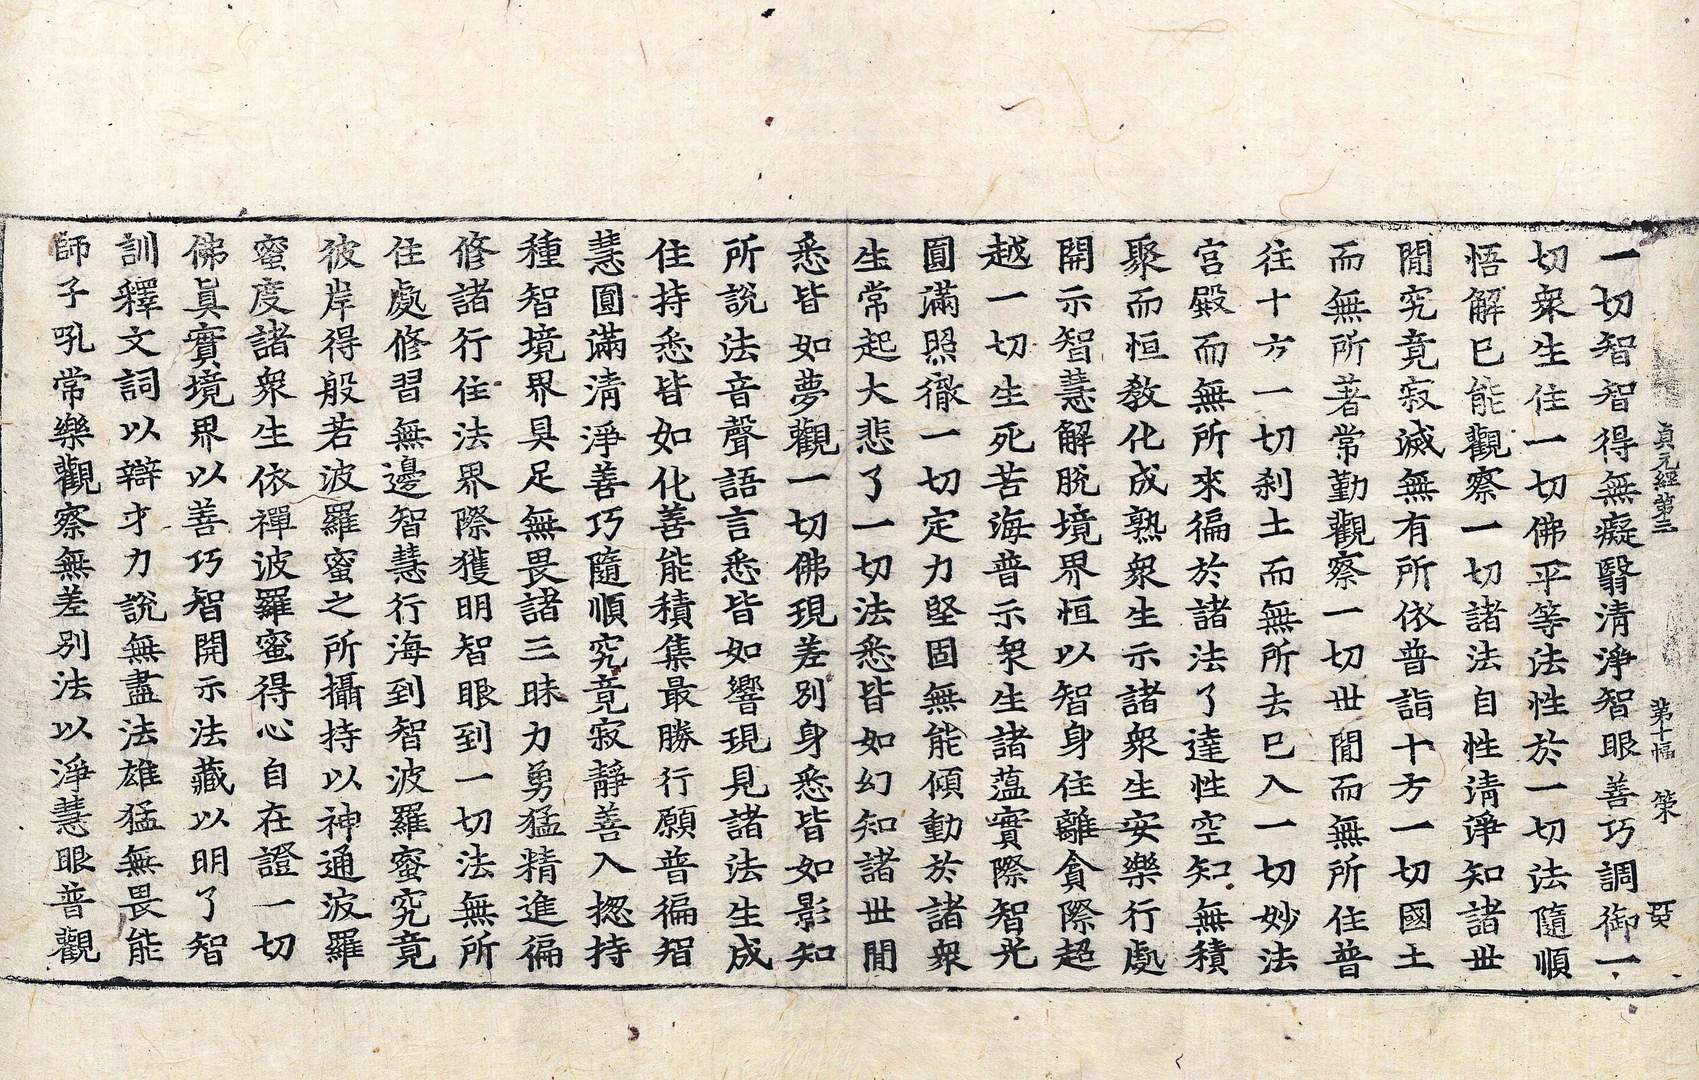 貞元經第三 第十幅 策
一切智智得無癡翳清淨智眼善巧調御一
切衆生住一切佛平等法性於一切法隨順
悟解已能觀察一切諸法自性清淨知諸世
閒究竟寂滅無有所依普詣十方一切國土
而無所著常勤觀察一切世閒而無所住普
往十方一切刹土而無所去已入一切妙法
宮殿而無所來徧於諸法了達性空知無積
聚而恒教化成熟衆生示諸衆生安樂行處
開示智慧解脫境界恒以智身住離貪際超
越一切生死苦海普示衆生諸薀實際智光
圓滿照徹一切定力堅固無能傾動於諸衆
生常起大悲了一切法悉皆如幻知諸世閒
悉皆如夢觀一切佛現差別身悉皆如影知
所說法音聲語言悉皆如響現見諸法生成
住持悉皆如化善能積集最勝行願普徧智
慧圓滿清淨善巧隨順究竟寂靜善入揔持
種智境界具足無畏諸三昧力勇猛精進徧
修諸行住法界際獲明智眼到一切法無所
住處修習無邊智慧行海到智波羅蜜究竟
彼岸得般若波羅蜜之所攝持以神通波羅
蜜度諸衆生依禪波羅蜜得心自在證一切
佛眞實境界以善巧智開示法藏以明了智
訓釋文詞以辯才力說無盡法雄猛無畏能
師子吼常樂觀察無差別法以淨慧眼普觀